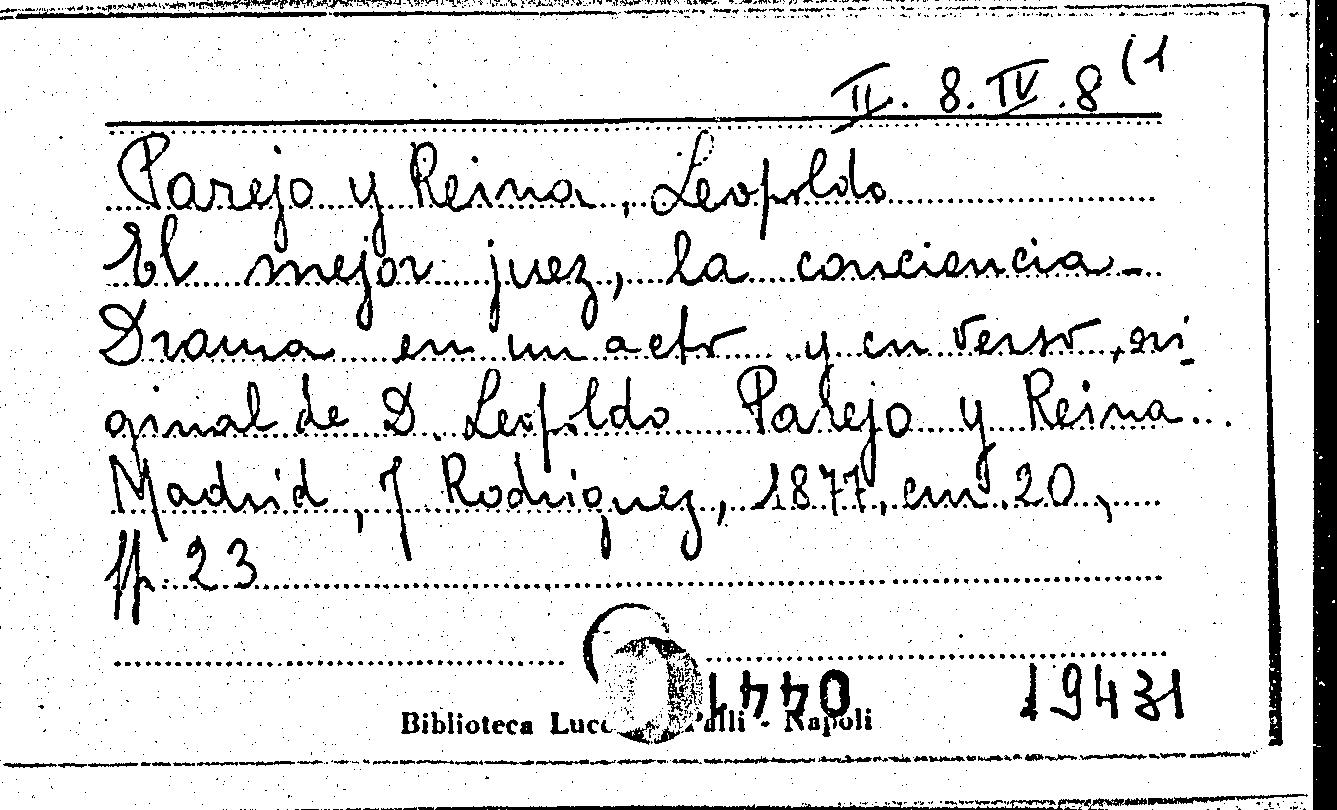 II. 8. IV. 8 (1
Parejo y Reina, Leopoldo
El mejor juez, la conciencia -
Drama en un acto y en verso, ori-
ginal de D. Leopoldo Parejo y Reina.
Madrid, J Rodriguez, 1877, cm. 20,
pp. 23
19431
Biblioteca Palli - Napoli